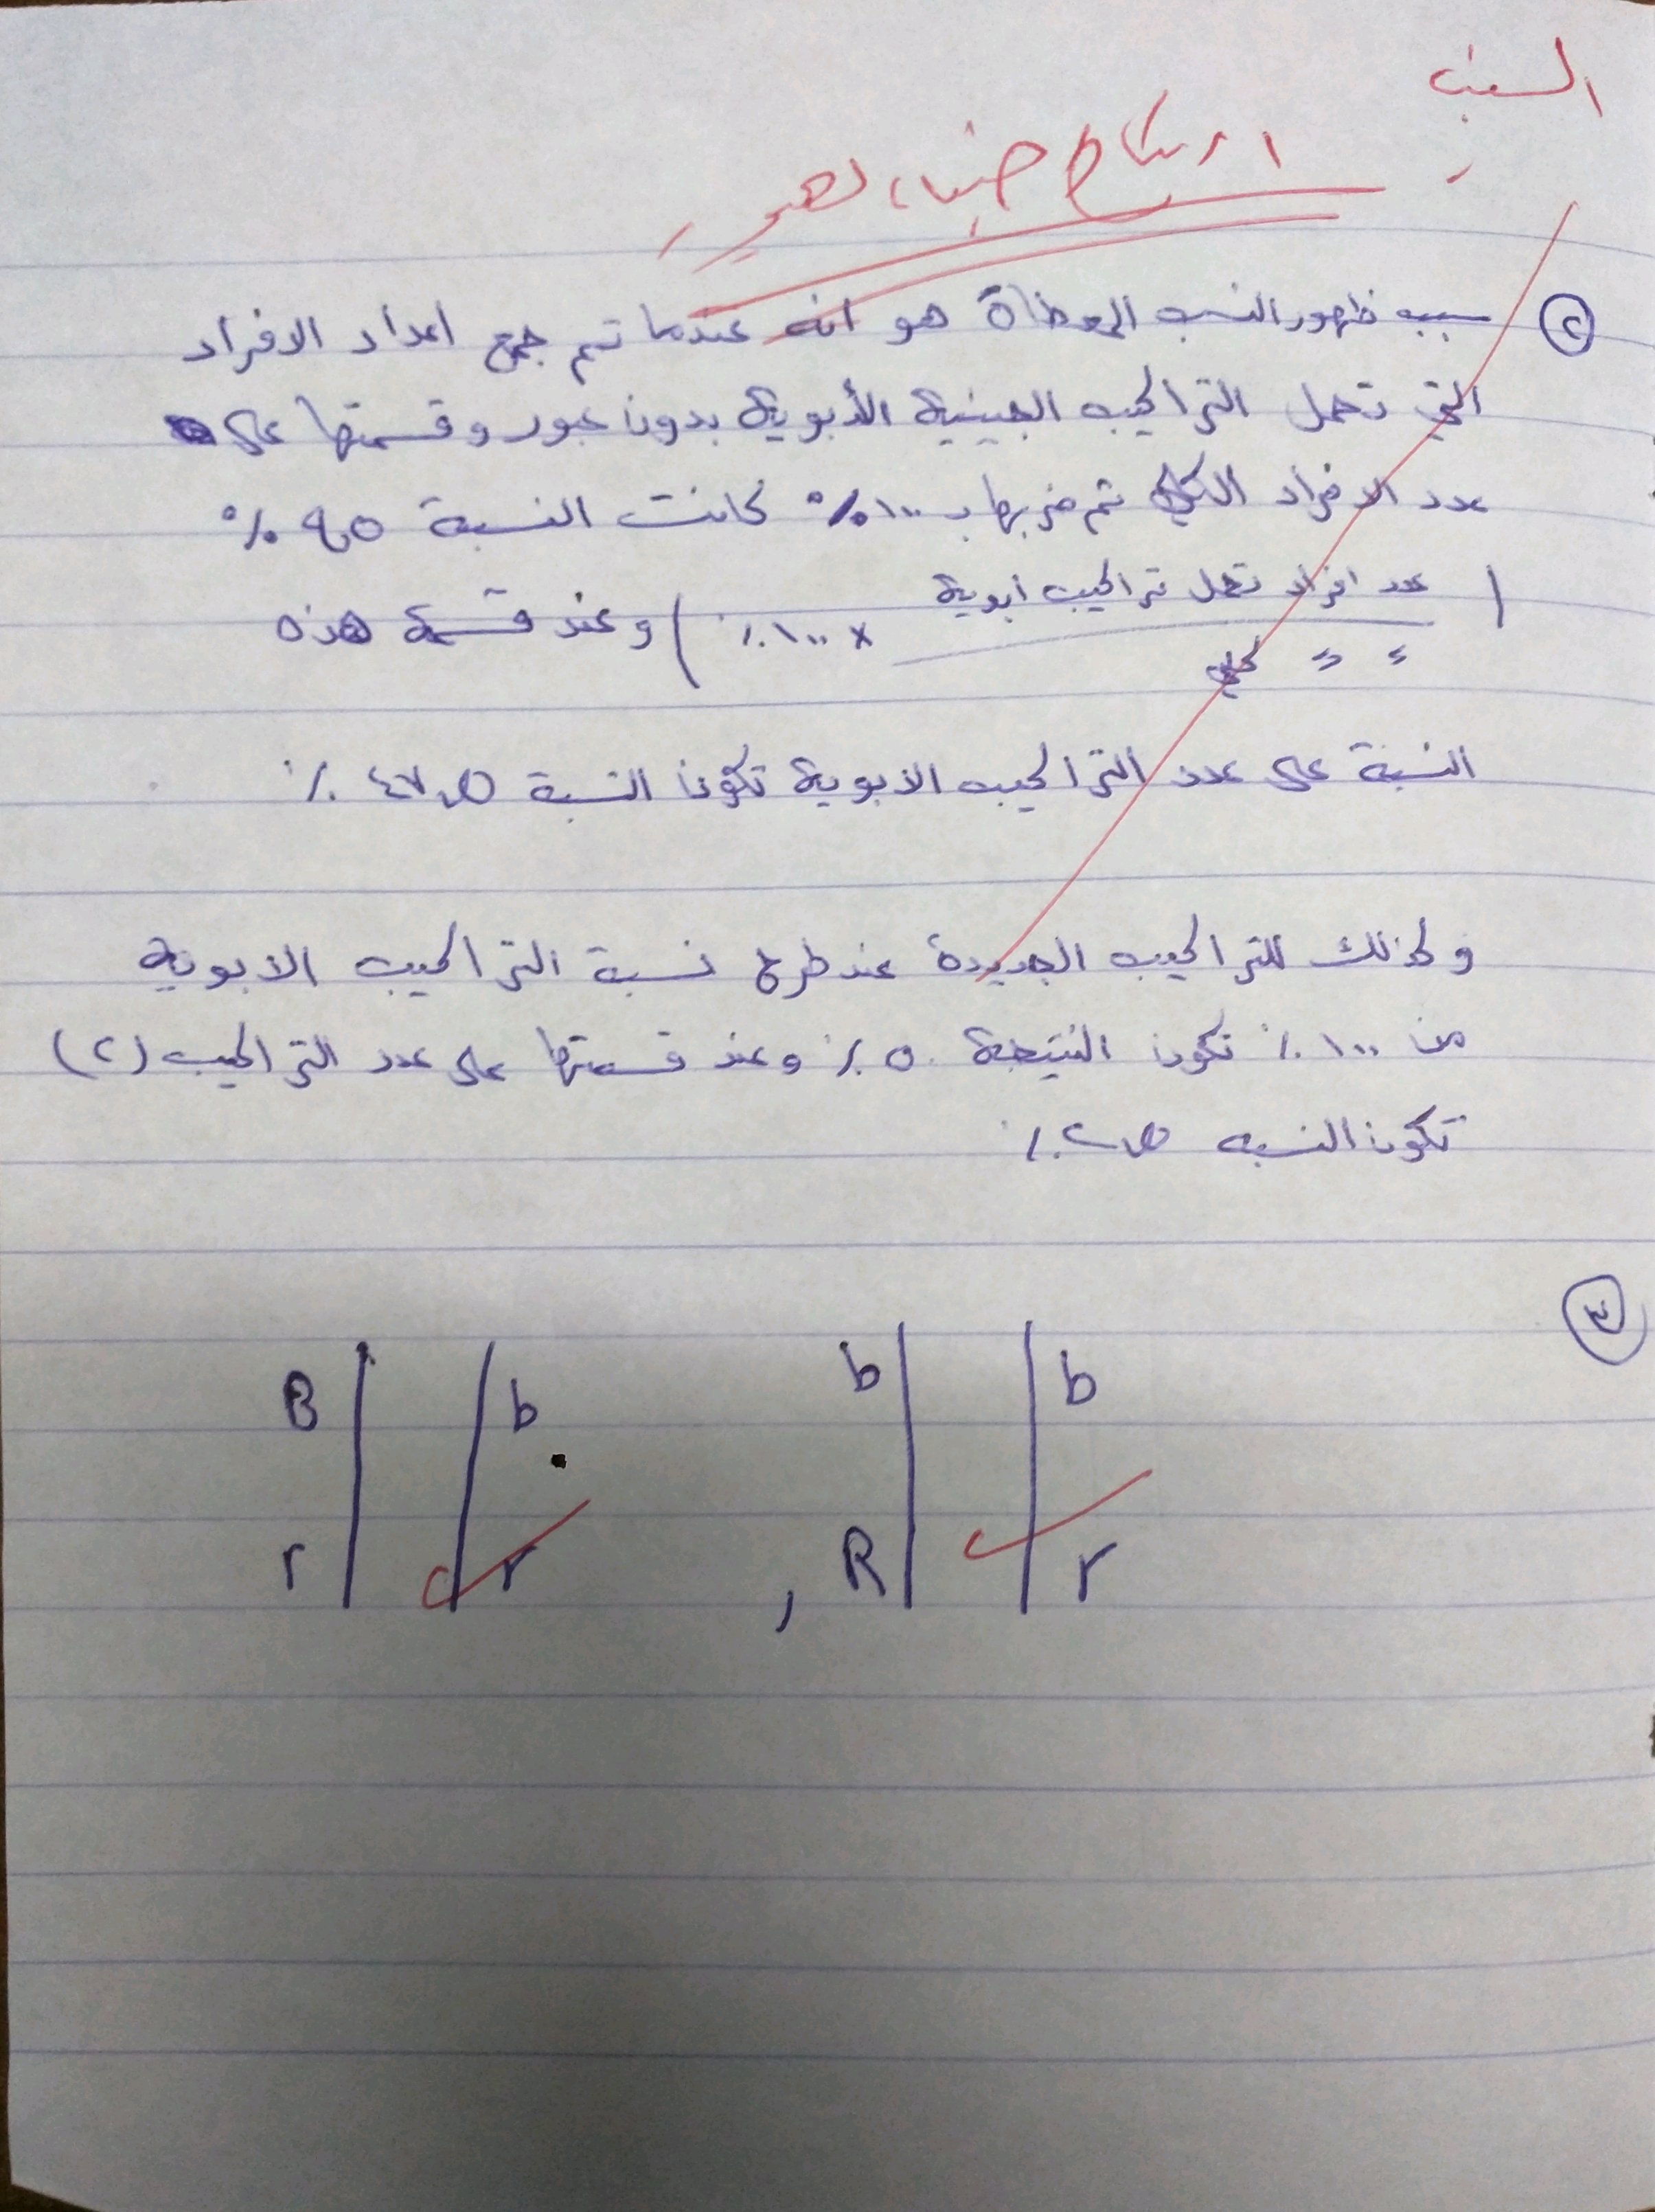 السبب
ارتباط جينات عبور
٢ سبب ظهور النسب المعطاة هو انه عندما تم جمع اعداد الافراد
التي تحمل التراكيب الجينية الأبوية بدون عبور وقسمتها على
عدد الافراد الكلي تم ضربها بـ ١٠٠٪ كانت النسبة ٩٥ ٪
( عدد افراد تحمل تراكيب ابوية × ١٠٠٪ ) وعند قسمة هذه
〃 〃 كلي
النسبة على عدد التراكيب الابوية تكون النسبة ٤٧,٥ ٪
وكذلك للتراكيب الجديدة عند طرح نسبة التراكيب الابوية
من ١٠٠٪ تكون النتيجة ٥٪ وعند قسمتها على عدد التراكيب (٢)
تكون النسبه ٢,٥٪
٣
B b b b
r r , R r